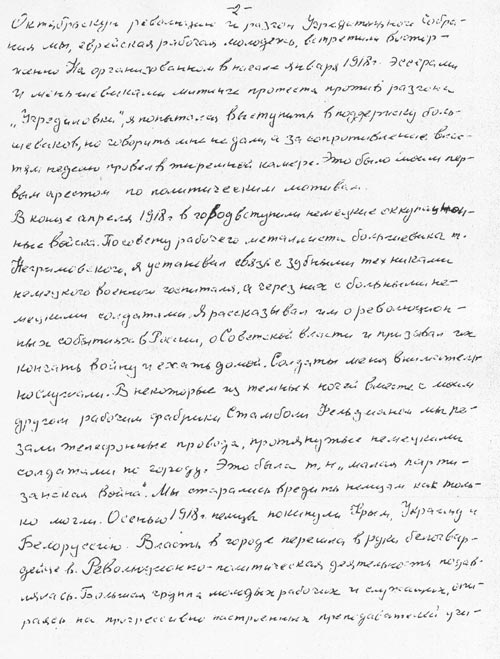 -2-
Октябрьскую революцию и разгон Учредительного Собра-
ния мы, еврейская рабочая молодежь, встретили востор-
женно. На организованном в начале января 1918 г. эсерами
и меньшевиками митинге протеста против разгона
„Учредиловки", я попытался выступить в поддержку боль-
шевиков, но говорить мне не дали, а за сопротивление влас-
тям неделю провел в тюремной камере. Это было моим пер-
вым арестом по политическим мотивам.
В конце апреля 1918 г в город вступили немецкие оккупацион-
ные войска. По совету рабочего металлиста большевика т.
я установил связь с зубными техниками
немецкого военного госпиталя, а через них с больными не-
мецкими солдатами. Я рассказывал им о революцион-
ных событиях в России, о Советской власти и призывал их
кончать войну и ехать домой. Солдаты меня внимательно
слушали. В некоторые из темных ночей вместе с моим
другом рабочим фабрики Стамболи Фельдманом мы ре-
зали телефонные провода, протянутые немецкими
солдатами по городу. Это была т. н. „малая парти-
занская война". Мы старались вредить немцам как толь-
ко могли. Осенью 1918 г. немцы покинули Крым, Украину и
Белоруссию. Власть в городе перешла в руки белогвар-
дейцев. Революционно-политическая деятельность подав-
лялась. Большая группа молодых рабочих и служащих, опи-
раясь на прогрессивно настроенных преподавателей учи-